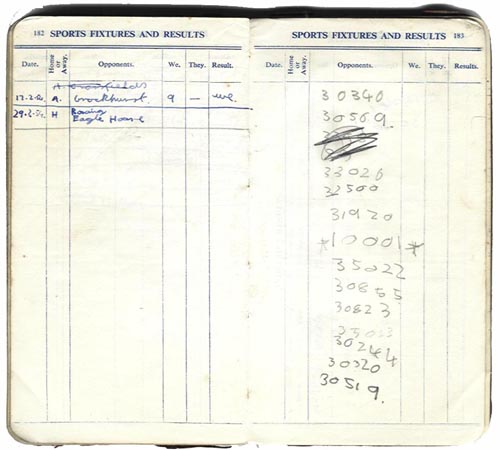 182 SPORTS FIXTURES AND RESULTS
Date. Home or Away. Opponents. We. They. Result.
A.
A. 9 — we.
H Boxing
Eagle House
SPORTS FIXTURES AND RESULTS 183
Date. Home or Away. Opponents. We. They. Result.
30340
30509.
33020
32500
31920
*10001*
35022
30855
30823
30244
30320
30519.